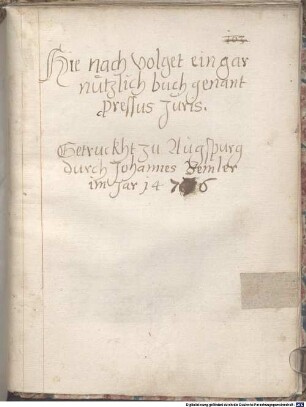 Hie nach volget ein gar
nützlich buch genant
processus Juris.
Getruckht zu Augspurg
durch Johannes Bemler
im Jar 14 7 6